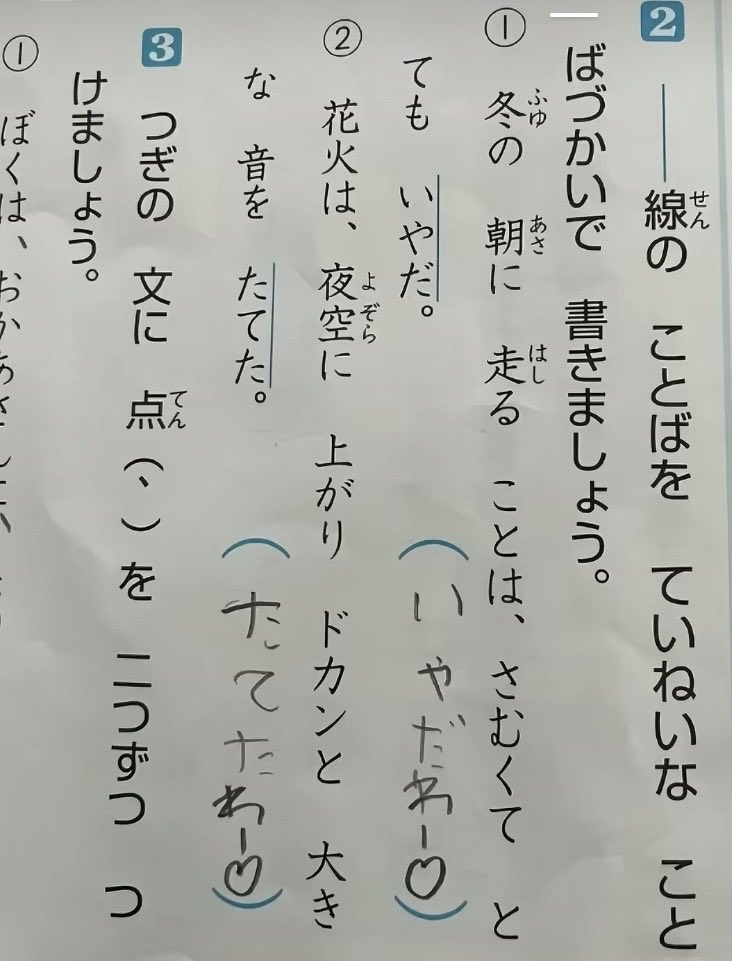 2 ――線の ことばを ていねいな こと
ばづかいで 書きましょう。
① 冬の 朝に 走る ことは、さむくて と
ても いやだ。
(いやだわー♡)
② 花火は、夜空に 上がり ドカンと 大き
な 音を たてた。
(たてたわー♡)
3 つぎの 文に 点(、)を 二つずつ つ
けましょう。
① ぼくは、おかあさんに、